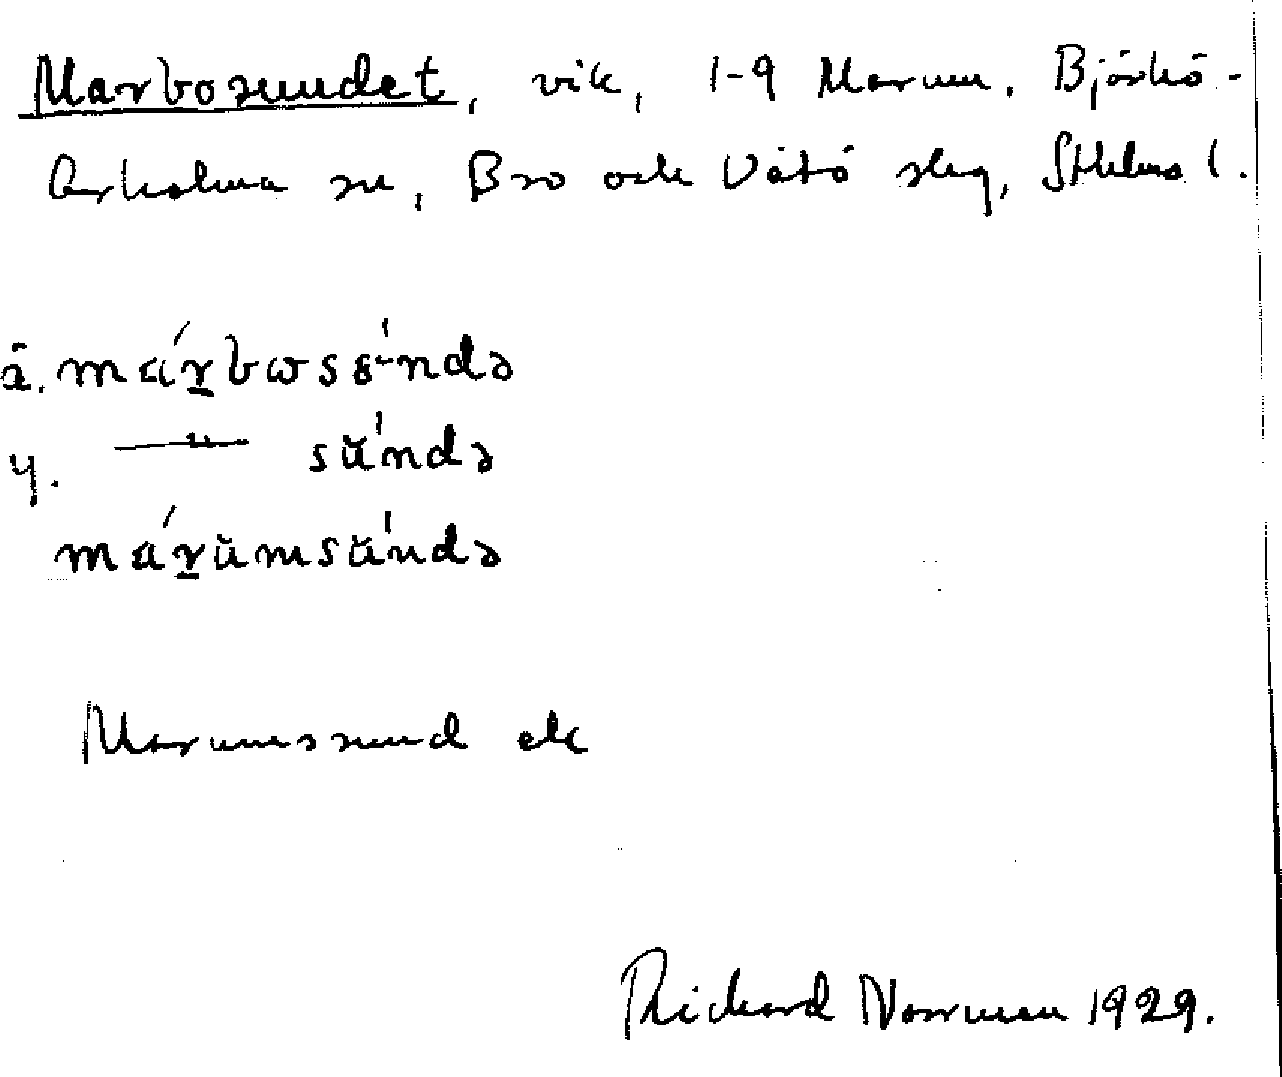 Marbosundet, vik, 1-9 Marum. Björkö-
Arholma sn, Bro och Vätö slg, Sthlms l.
ä. márbωssí̵ndə
y. —〃— sŭ́ndə
márŭmsŭ́ndə
Marumssund ek
Richard Norrman 1929.